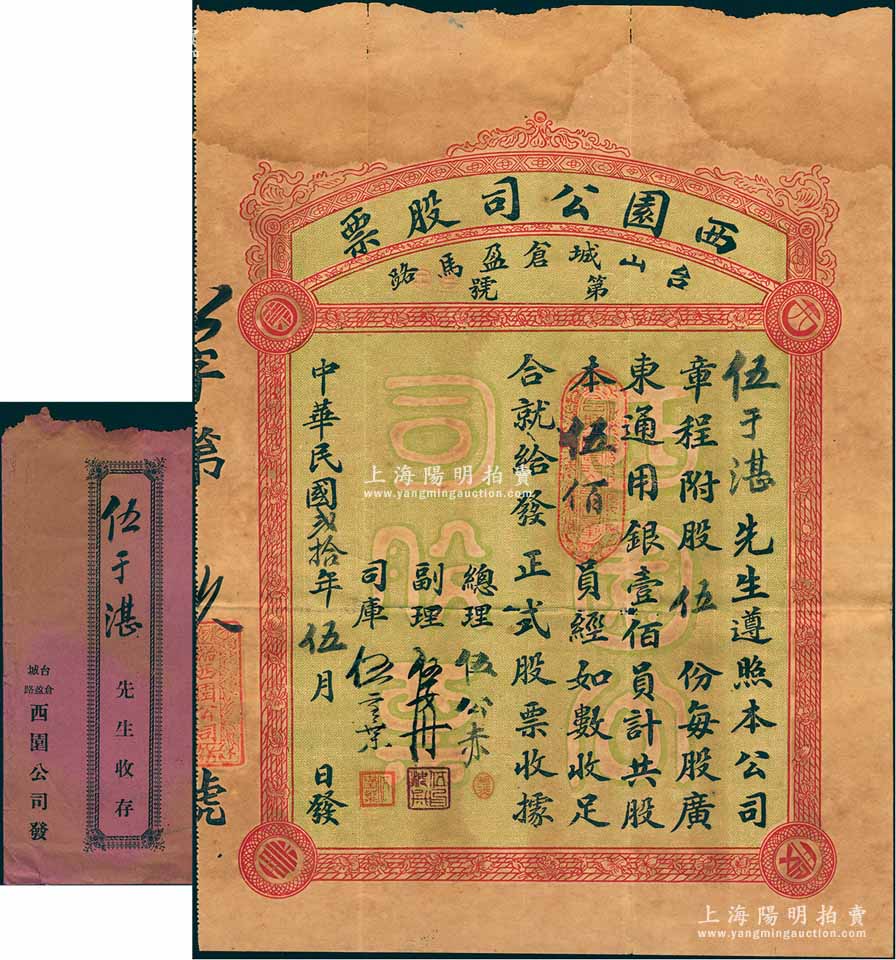 西園公司股票
台山城倉盈馬路
第 號
伍于湛先生遵照本公司
章程附股伍份每股廣
東通用銀壹佰員計共股
本伍佰員經如數收足
合就給發正式股票收據
總理伍公赤
副理
司庫伍
中華民國弍拾年伍月 日發
字第 號
伍于湛先生收存
台城倉盈路西園公司發
上海陽明拍賣
www.yangmingauction.com
上海陽明拍賣
www.yangmingauction.com